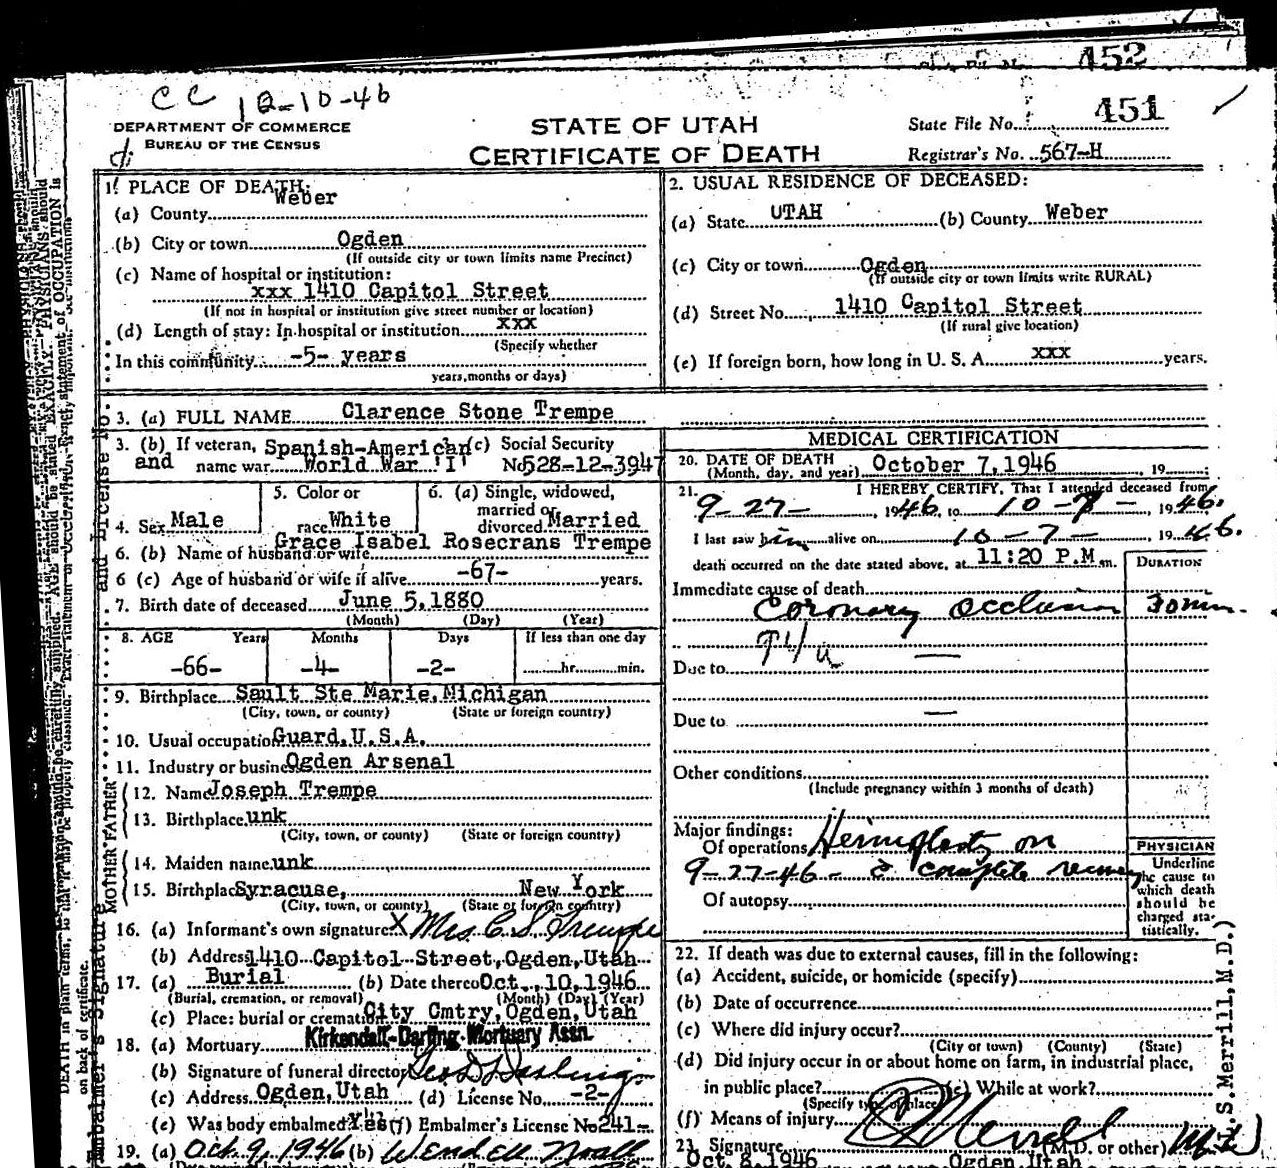 452
CC 12-10-46
DEPARTMENT OF COMMERCE
BUREAU OF THE CENSUS
STATE OF UTAH
CERTIFICATE OF DEATH
State File No. 451
Registrar's No. 567-H
1. PLACE OF DEATH:
(a) County Weber
(b) City or town Ogden
(If outside city or town limits name Precinct)
(c) Name of hospital or institution:
xxx 1410 Capitol Street
(If not in hospital or institution give street number or location)
(d) Length of stay: In hospital or institution xxx
(Specify whether
In this community -5- years
years, months or days)
2. USUAL RESIDENCE OF DECEASED:
(a) State UTAH (b) County Weber
(c) City or town Ogden
(If outside city or town limits write RURAL)
(d) Street No. 1410 Capitol Street
(If rural give location)
(e) If foreign born, how long in U. S. A. xxx years.
3. (a) FULL NAME Clarence Stone Trempe
3. (b) If veteran, Spanish-American (c) Social Security
and name war World War 'I' No 528-12-3947
4. Sex Male
5. Color or race White
6. (a) Single, widowed, married or divorced Married
6. (b) Name of husband or wife Grace Isabel Rosecrans Trempe
6 (c) Age of husband or wife if alive -67- years.
7. Birth date of deceased June 5, 1880
(Month) (Day) (Year)
8. AGE Years Months Days If less than one day
-66- -4- -2- hr. min.
9. Birthplace Sault Ste Marie, Michigan
(City, town, or county) (State or foreign country)
10. Usual occupation Guard, U.S.A.
11. Industry or busines Ogden Arsenal
FATHER
12. Name Joseph Trempe
13. Birthplace unk
(City, town, or county) (State or foreign country)
MOTHER
14. Maiden name unk
15. Birthplac Syracuse, New York
(City, town, or county) (State or foreign country)
16. (a) Informant's own signature X Mrs C. S. Trempe
(b) Address 1410 Capitol Street, Ogden, Utah
17. (a) Burial (b) Date thereo Oct. 10, 1946
(Burial, cremation, or removal) (Month) (Day) (Year)
(c) Place: burial or cremation City Cmtry, Ogden, Utah
18. (a) Mortuary Kirkendall-Darling Mortuary Assn.
(b) Signature of funeral director Geo D Darling
(c) Address Ogden, Utah (d) License No. -2-
(e) Was body embalmed Yes (f) Embalmer's License No 241-
19. (a) Oct. 9, 1946 (b) Wendell
MEDICAL CERTIFICATION
20. DATE OF DEATH
(Month, day, and year) October 7, 1946, 19
21. I HEREBY CERTIFY, That I attended deceased from
9-27-, 1946, to 10-7-, 1946.
I last saw him alive on 10-7-, 1946.
death occurred on the date stated above, at 11:20 P.M. m.
DURATION
Immediate cause of death
Coronary Occlusion 30 min.
Due to —
Due to —
Other conditions
(Include pregnancy within 3 months of death)
Major findings:
Of operations on
9-27-46 - complete
Of autopsy
PHYSICIAN
Underline
he cause to
which death
should be
charged sta-
tistically.
22. If death was due to external causes, fill in the following:
(a) Accident, suicide, or homicide (specify)
(b) Date of occurrence
(c) Where did injury occur?
(City or town) (County) (State)
(d) Did injury occur in or about home on farm, in industrial place,
in public place? (e) While at work?
(Specify type of place)
(f) Means of injury
23. Signature Merrill (M.D. or other) M.D.
Oct. 8, 1946 Ogden, Utah
S. Merrill, M.D.)
Embalmer's Signature and License No.
on back of certificate.